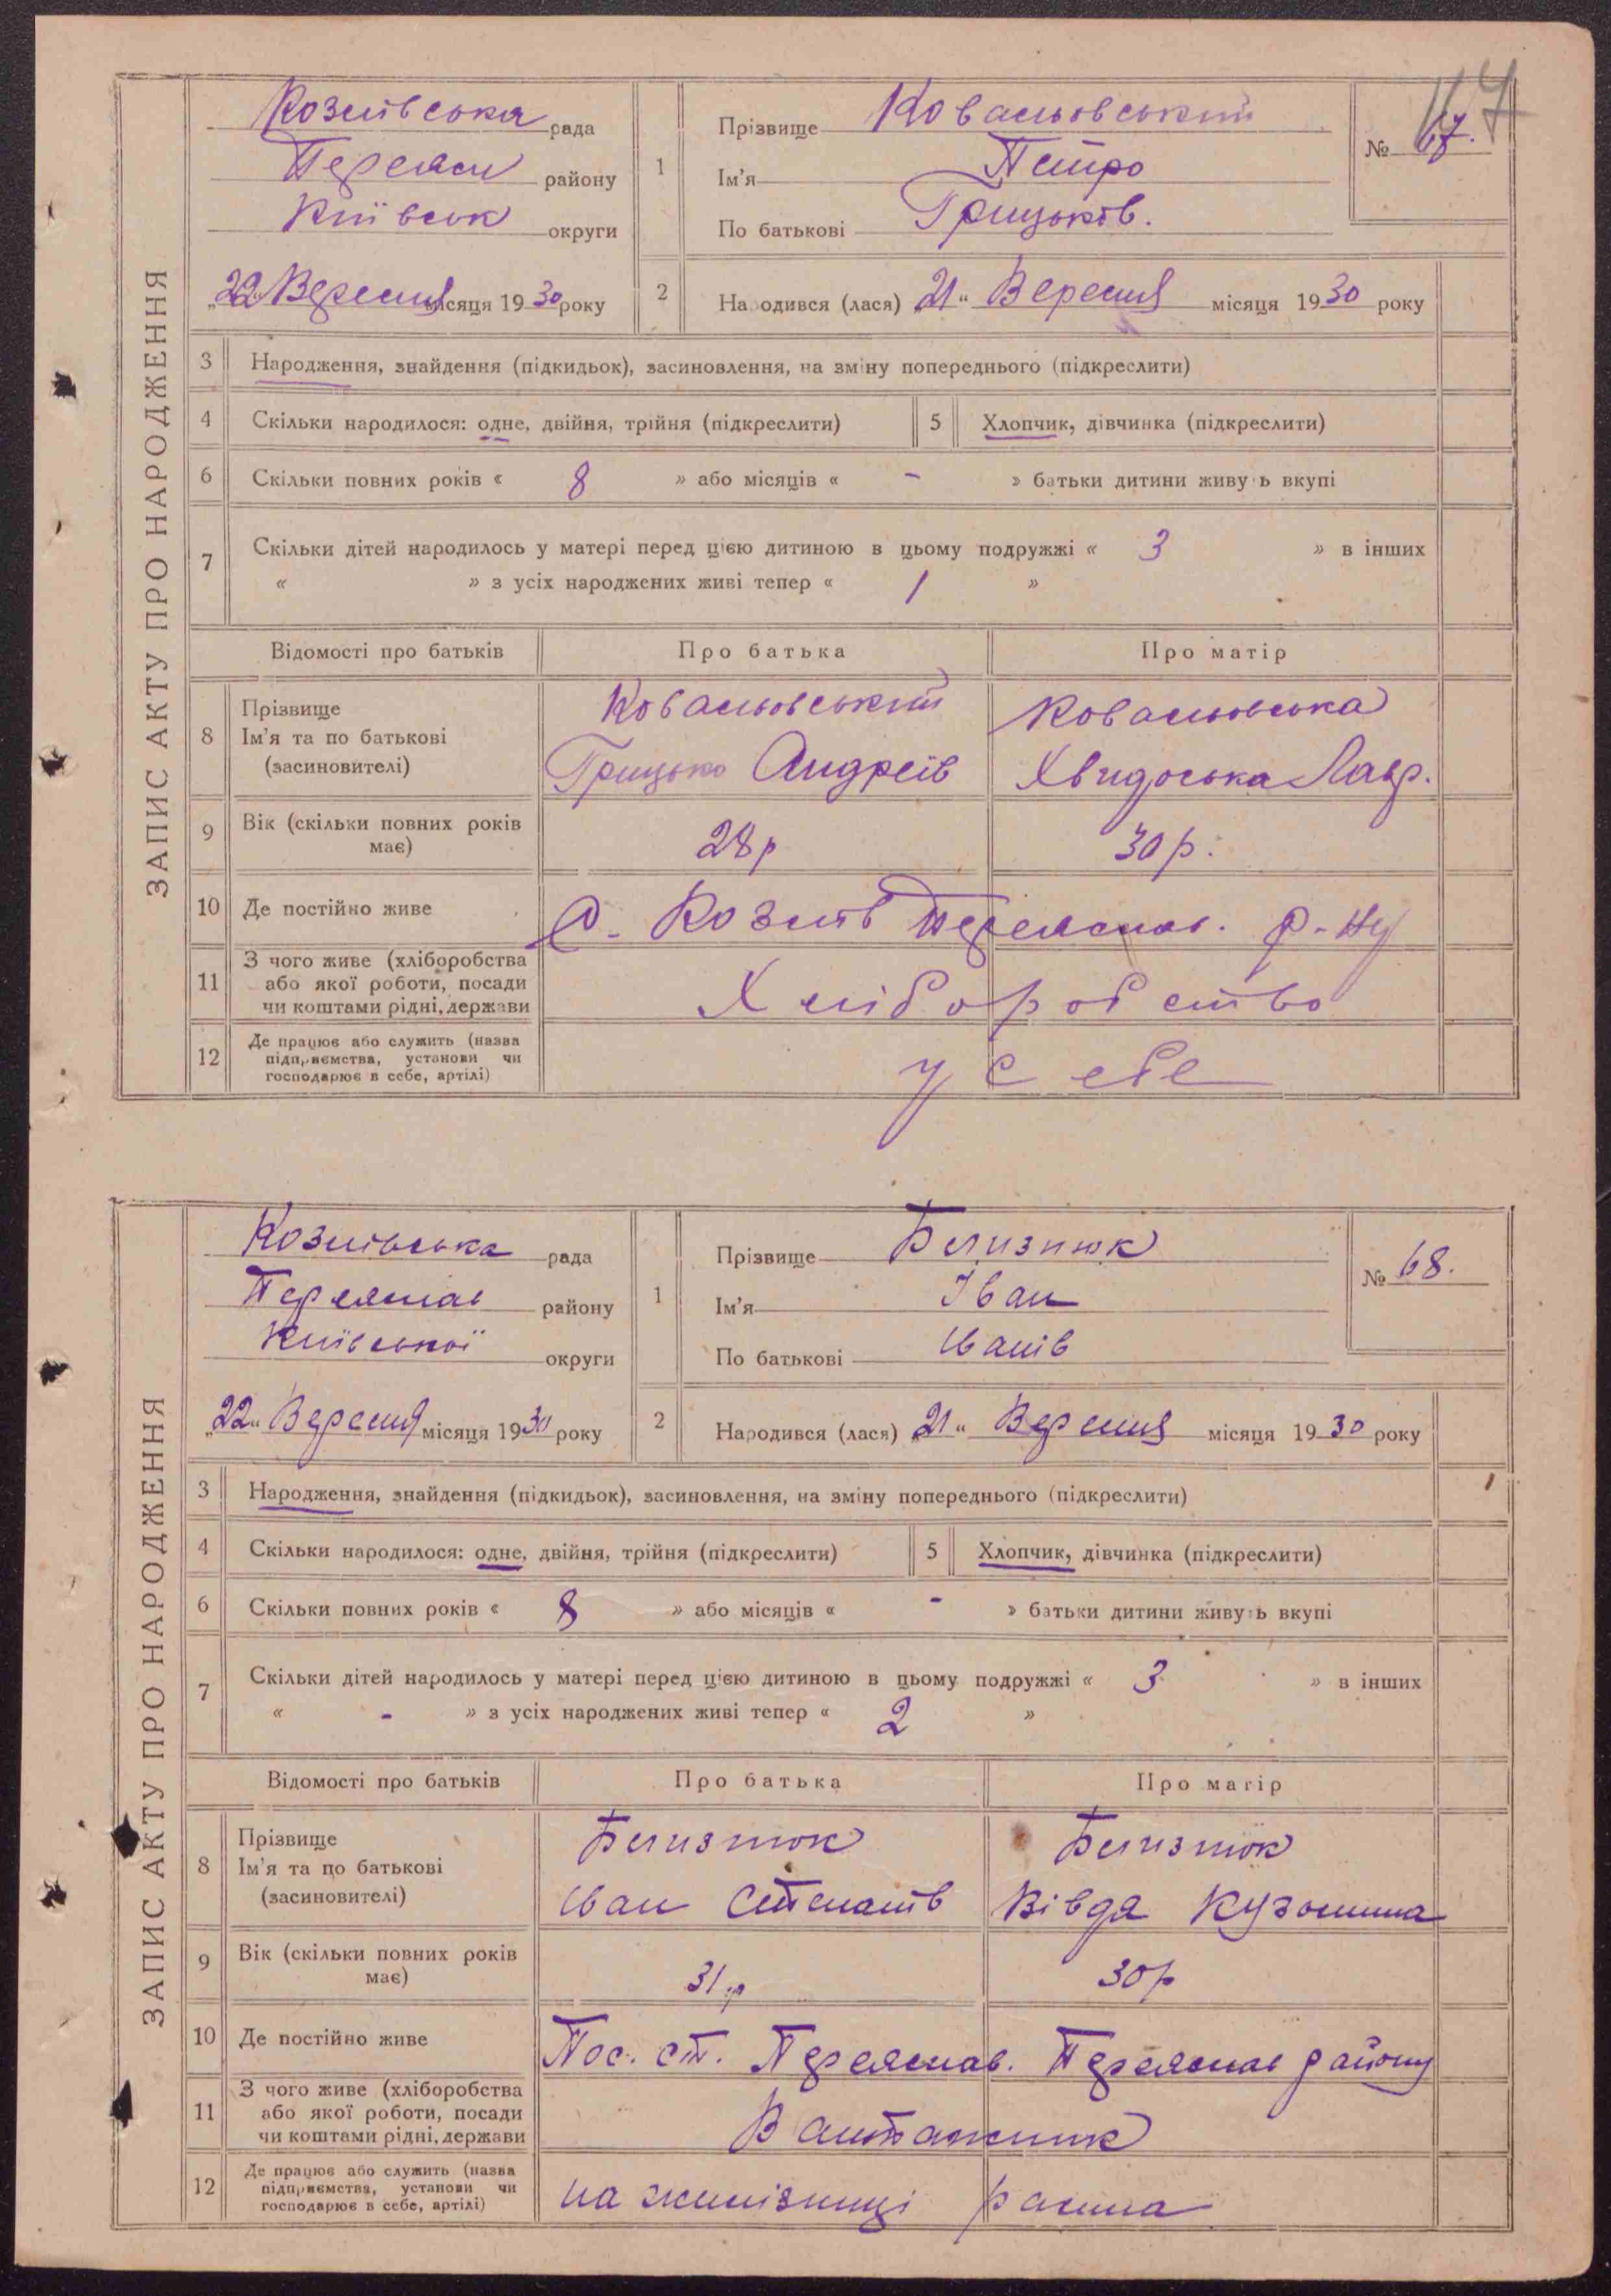 ЗАПИС АКТУ ПРО НАРОДЖЕННЯ
Козлівська рада
Переясл району
Київськ округи
„22 Вересня місяця 1930 року
1 Прізвище Ковальовський
Ім'я Петро
По батькові Грицьків.
№ 67.
2 Народився (лася) „21“ Вересня місяця 1930 року
3 Народження, знайдення (підкидьок), засиновлення, на зміну попереднього (підкреслити)
4 Скільки народилося: одне, двійня, трійня (підкреслити) 5 Хлопчик, дівчинка (підкреслити)
6 Скільки повних років « 8 » або місяців « - » батьки дитини живуть вкупі
7 Скільки дітей народилось у матері перед цією дитиною в цьому подружжі « 3 » в інших
« » з усіх народжених живі тепер « 1 »
Відомості про батьків Про батька Про матір
8 Прізвище
Ім'я та по батькові
(засиновителі)
Ковальовський
Грицько Андреїв
Ковальовська
Хвидоська Лавр.
9 Вік (скільки повних років має) 28р 30р.
10 Де постійно живе С. Козлів Переяслав. р-ну
11 З чого живе (хліборобства
або якої роботи, посади
чи коштами рідні, держави
Хліборобство
12 Де працює або служить (назва
підприємства, установи чи
господарює в себе, артілі)
у себе
ЗАПИС АКТУ ПРО НАРОДЖЕННЯ
Козлівська рада
Переяслав району
Київської округи
„22“ Вересня місяця 1930 року
1 Прізвище Близнюк
Ім'я Іван
По батькові Іванів
№ 68.
2 Народився (лася) „21“ Вересня місяця 1930 року
3 Народження, знайдення (підкидьок), засиновлення, на зміну попереднього (підкреслити)
4 Скільки народилося: одне, двійня, трійня (підкреслити) 5 Хлопчик, дівчинка (підкреслити)
6 Скільки повних років « 8 » або місяців « - » батьки дитини живуть вкупі
7 Скільки дітей народилось у матері перед цією дитиною в цьому подружжі « 3 » в інших
« - » з усіх народжених живі тепер « 2 »
Відомості про батьків Про батька Про матір
8 Прізвище
Ім'я та по батькові
(засиновителі)
Близнюк
Іван Степанів
Близнюк
Вівдя Кузьмина
9 Вік (скільки повних років має) 31.р 30р
10 Де постійно живе Пос. ст. Переяслав. Переяслав району
11 З чого живе (хліборобства
або якої роботи, посади
чи коштами рідні, держави
Вантажник
12 Де працює або служить (назва
підприємства, установи чи
господарює в себе, артілі)
на залізниці